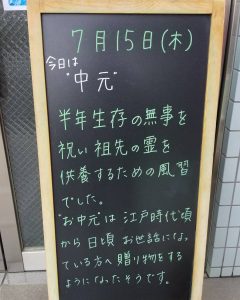 7月15日(木)
今日は
"中元"
半年生存の無事を
祝い祖先の霊を
供養するための風習
でした。
"お中元は江戸時代頃
から日頃お世話になっ
ている方へ贈り物をする
ようになったそうです。